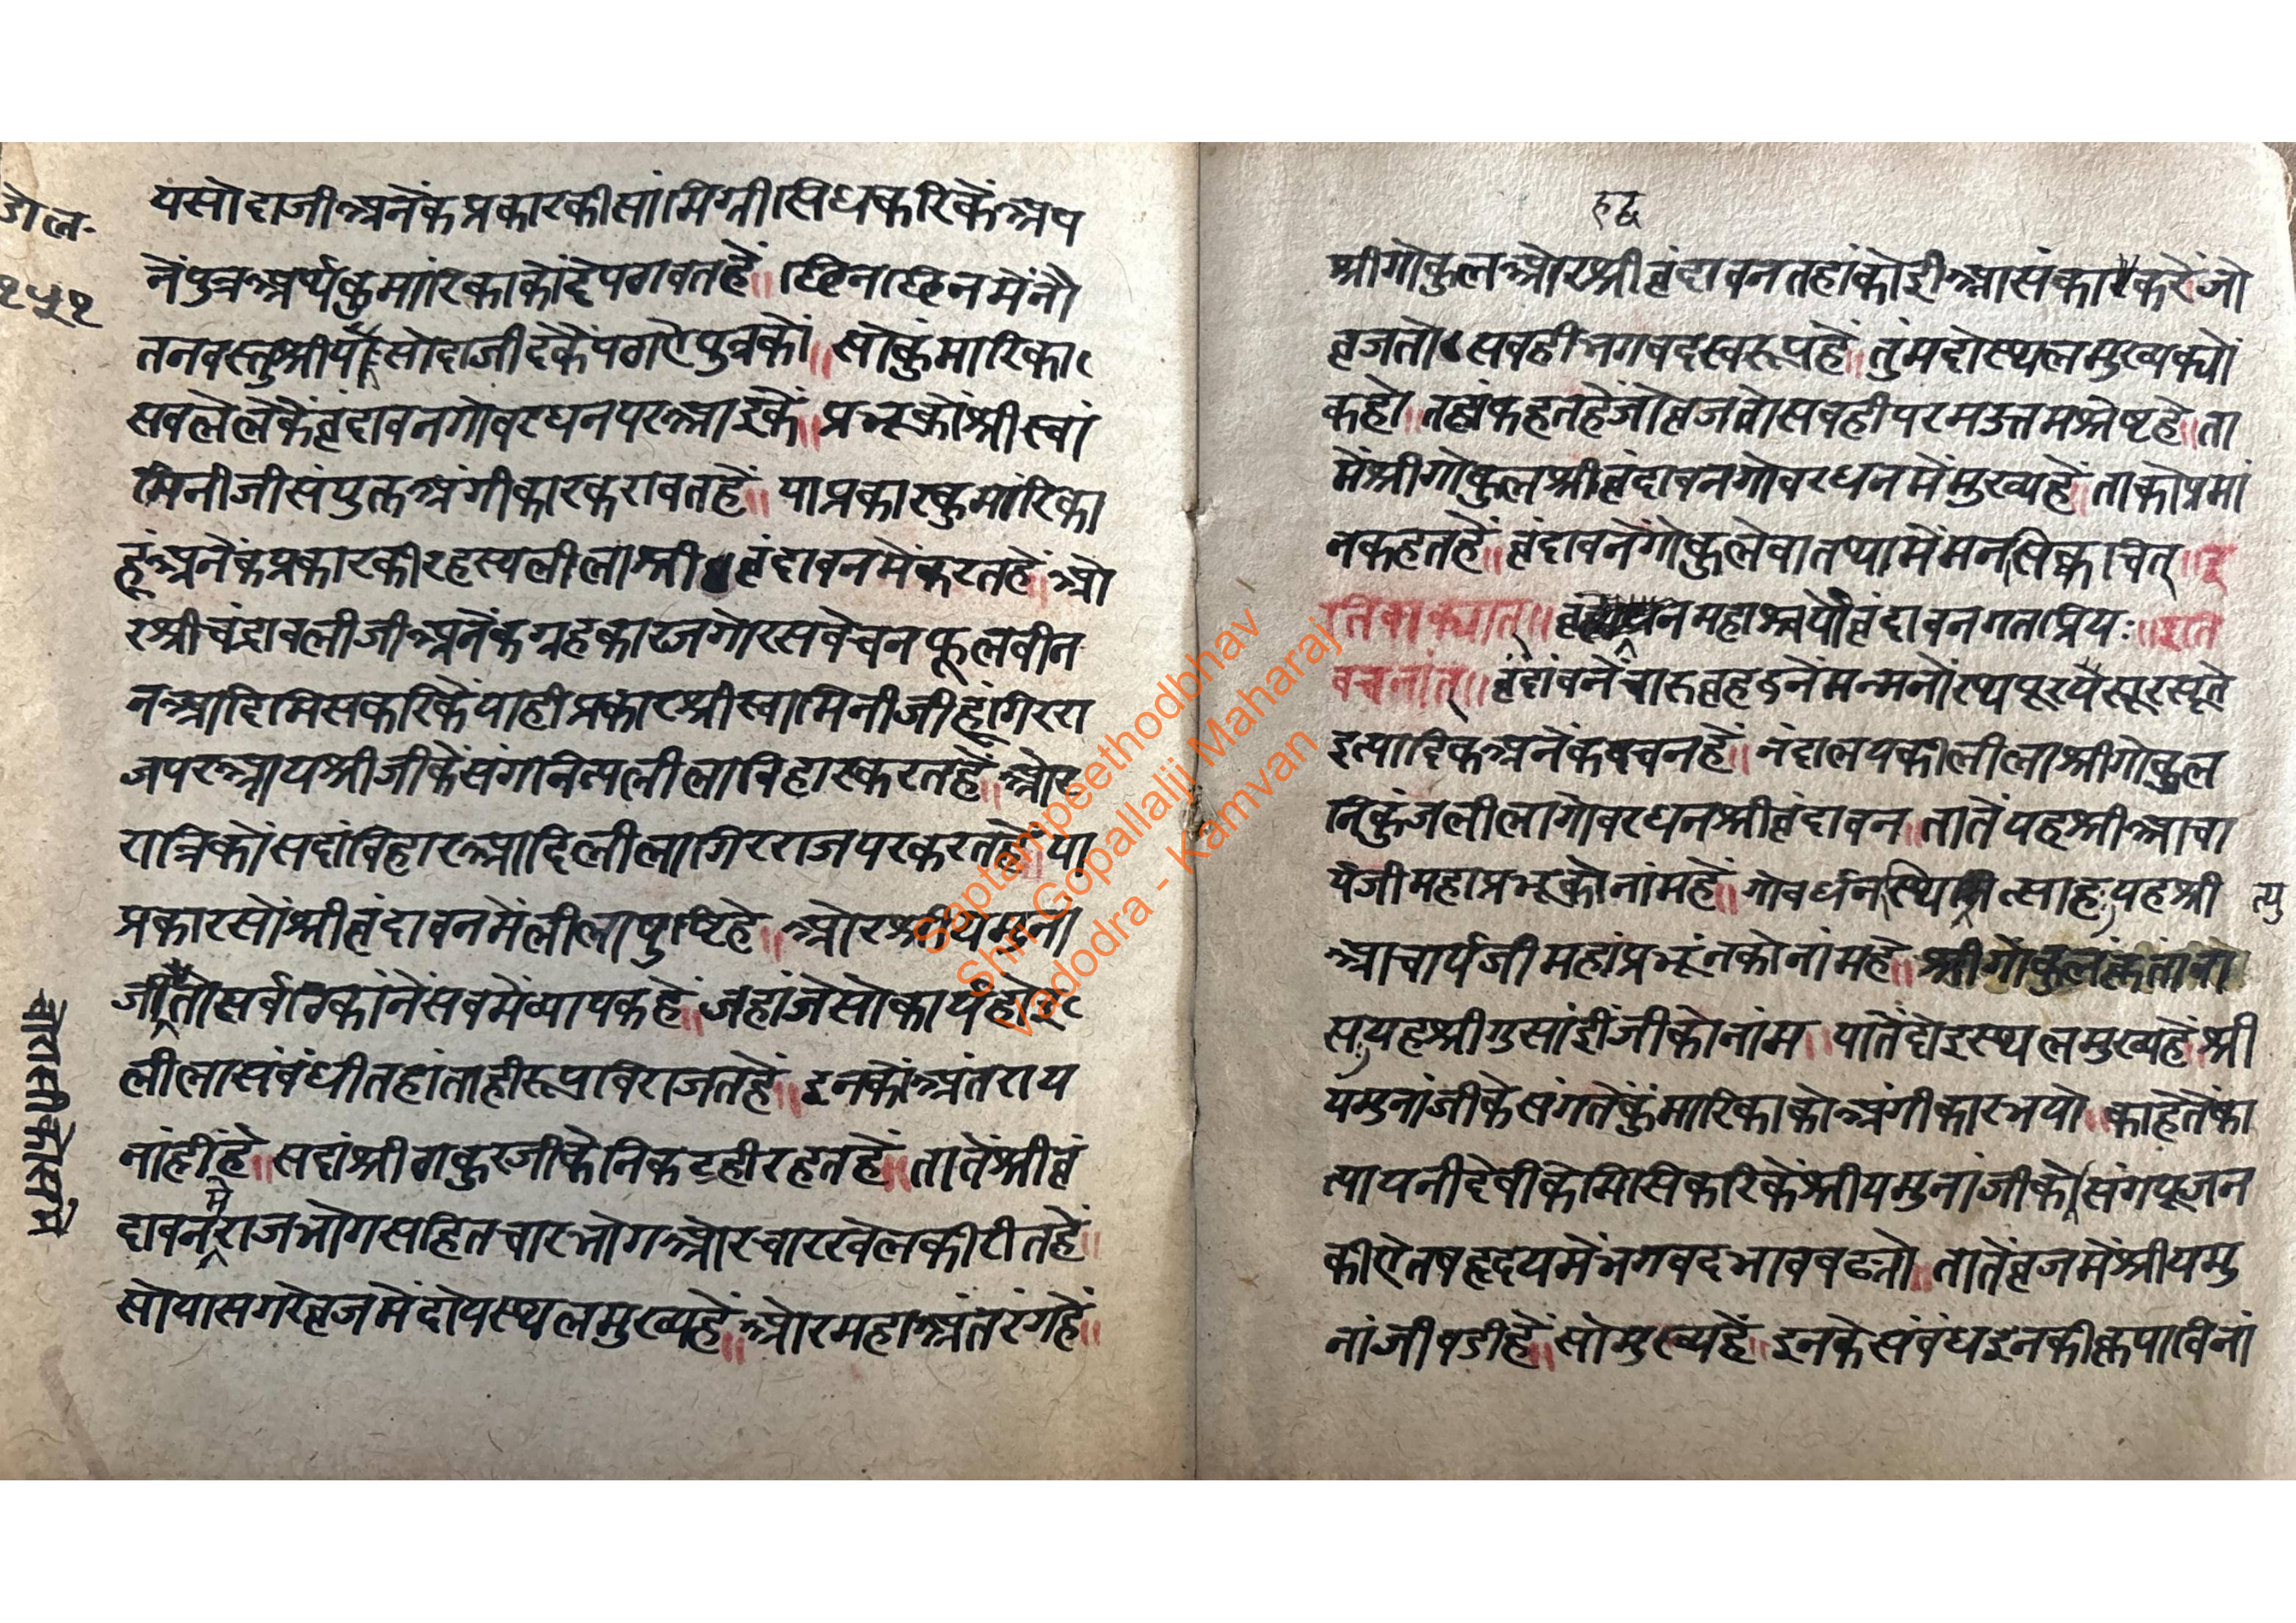 डोल-
१५१
यसोदाजीअनेंकप्रकारकीसांमिग्रीसिधकरिकेंअप
नेंपुत्रअर्थकुमारिकाकोंदेपठावतहें॥छिनछिनमेंनौ
तनवस्तुश्रीयसोदाजीदेकेंपठाऐपुत्रकों॥सोकुंमारिका
सबलेलेकेंवृंदावनगोवरधनपरआइकें॥प्रभूकोंश्रीस्वां
मिनीजीसंयुक्तअंगीकारकरावतहें॥याप्रकारकुमारिका
हूंअनेंकप्रकारकीरहस्यलीलाश्रीवृंदावनमेंकरतहें॥ओ
रश्रीचंद्रावलीजीअनेंकग्रहकारजगोरसबेचनफूलबीन
नआदिमिसकरिकेंयाहीप्रकारश्रीस्वामिनीजीहूंगिररा
जपरआयश्रीजीकेंसंगनित्यलीलाविहारकरतहें॥ओर
रात्रिकोंसदांविहारआदिलीलागिरराजपरकरतहें॥या
प्रकारसोंश्रीवृंदावनमेंलीलापुष्टिहे॥ओरश्रीयमुना
जीतोसर्वठिकांनेंसबमेंव्यापकहें॥जहांजेसोकार्यहोइ
लीलासंबंधीतहांताहीरूपविराजतहें॥इनकोंअंतराय
नांहींहे॥सदांश्रीठाकुरजीकेनिकटहीरहतहें॥तातेंश्रीवृं
दावनमेंराजभोगसहितचारभोगओरचारखेलकीरीतहें॥
सोयासगरेवृजमेंदोयस्थलमुख्यहें॥ओरमहाअंतरंगहें॥
चोरासीकोसमें
श्रीगोकुलओरश्रीवृंदावनतहांकोईआसंकाकरेंजो
वृजतोसबहीभगवदस्वरूपहें॥तुंमदोस्थलमुख्यक्यों
कहो॥तहांकहतहेंजोवृजतोसबहीपरमउत्तमश्रेष्टहे॥ता
मेंश्रीगोकुलश्रीवृंदावनगोवरधनमेंमुख्यहें॥ताकोप्रमां
नकहतहें॥वृंदावनेंगोकुलेवातथामेंमनसिक्वाचित्॥इ
तिवाक्यात्॥नमहाश्चर्यवृंदावनगताप्रियः॥इति
वचनांत्॥वृंदावनेंचारुवृहद्वनेंमन्मनोरथपूरयेसूरसूते
इत्यादिकअनेंकवचनहें॥नंदालयकीलीलाश्रीगोकुल
निकुंजलीलागोवरधनश्रीवृंदावन॥तातेंयहश्रीआचा
र्यजीमहाप्रभूकोनांमहें॥गोवर्धनस्थित्युत्साहः,यहश्री
आचार्यजीमहांप्रभूंनकोनांमहे॥श्रीगोकुलंकृतांवा
सः,यहश्रीगुसांईंजीकोनांम॥यातेंदोइस्थलमुख्यहें॥श्री
यंमुनांजीकेसंगतेंकुंमारिकाकोअंगीकारभयो॥काहेतेंका
त्यायनीदेवीकेमिसिकरिकेंश्रीयमुनांजीकोसंगपूजन
कीऐतबहृदयमेंभगवदभावबढ्यो॥तातेंवृजमेंश्रीयमु
नांजीबडीहें॥सोमुख्यहें॥इनकेसंबंधइनकीकृपाविनां
Saptampeethodbhav
Shri Gopallalji Maharaj
Vadodra - Kamvan